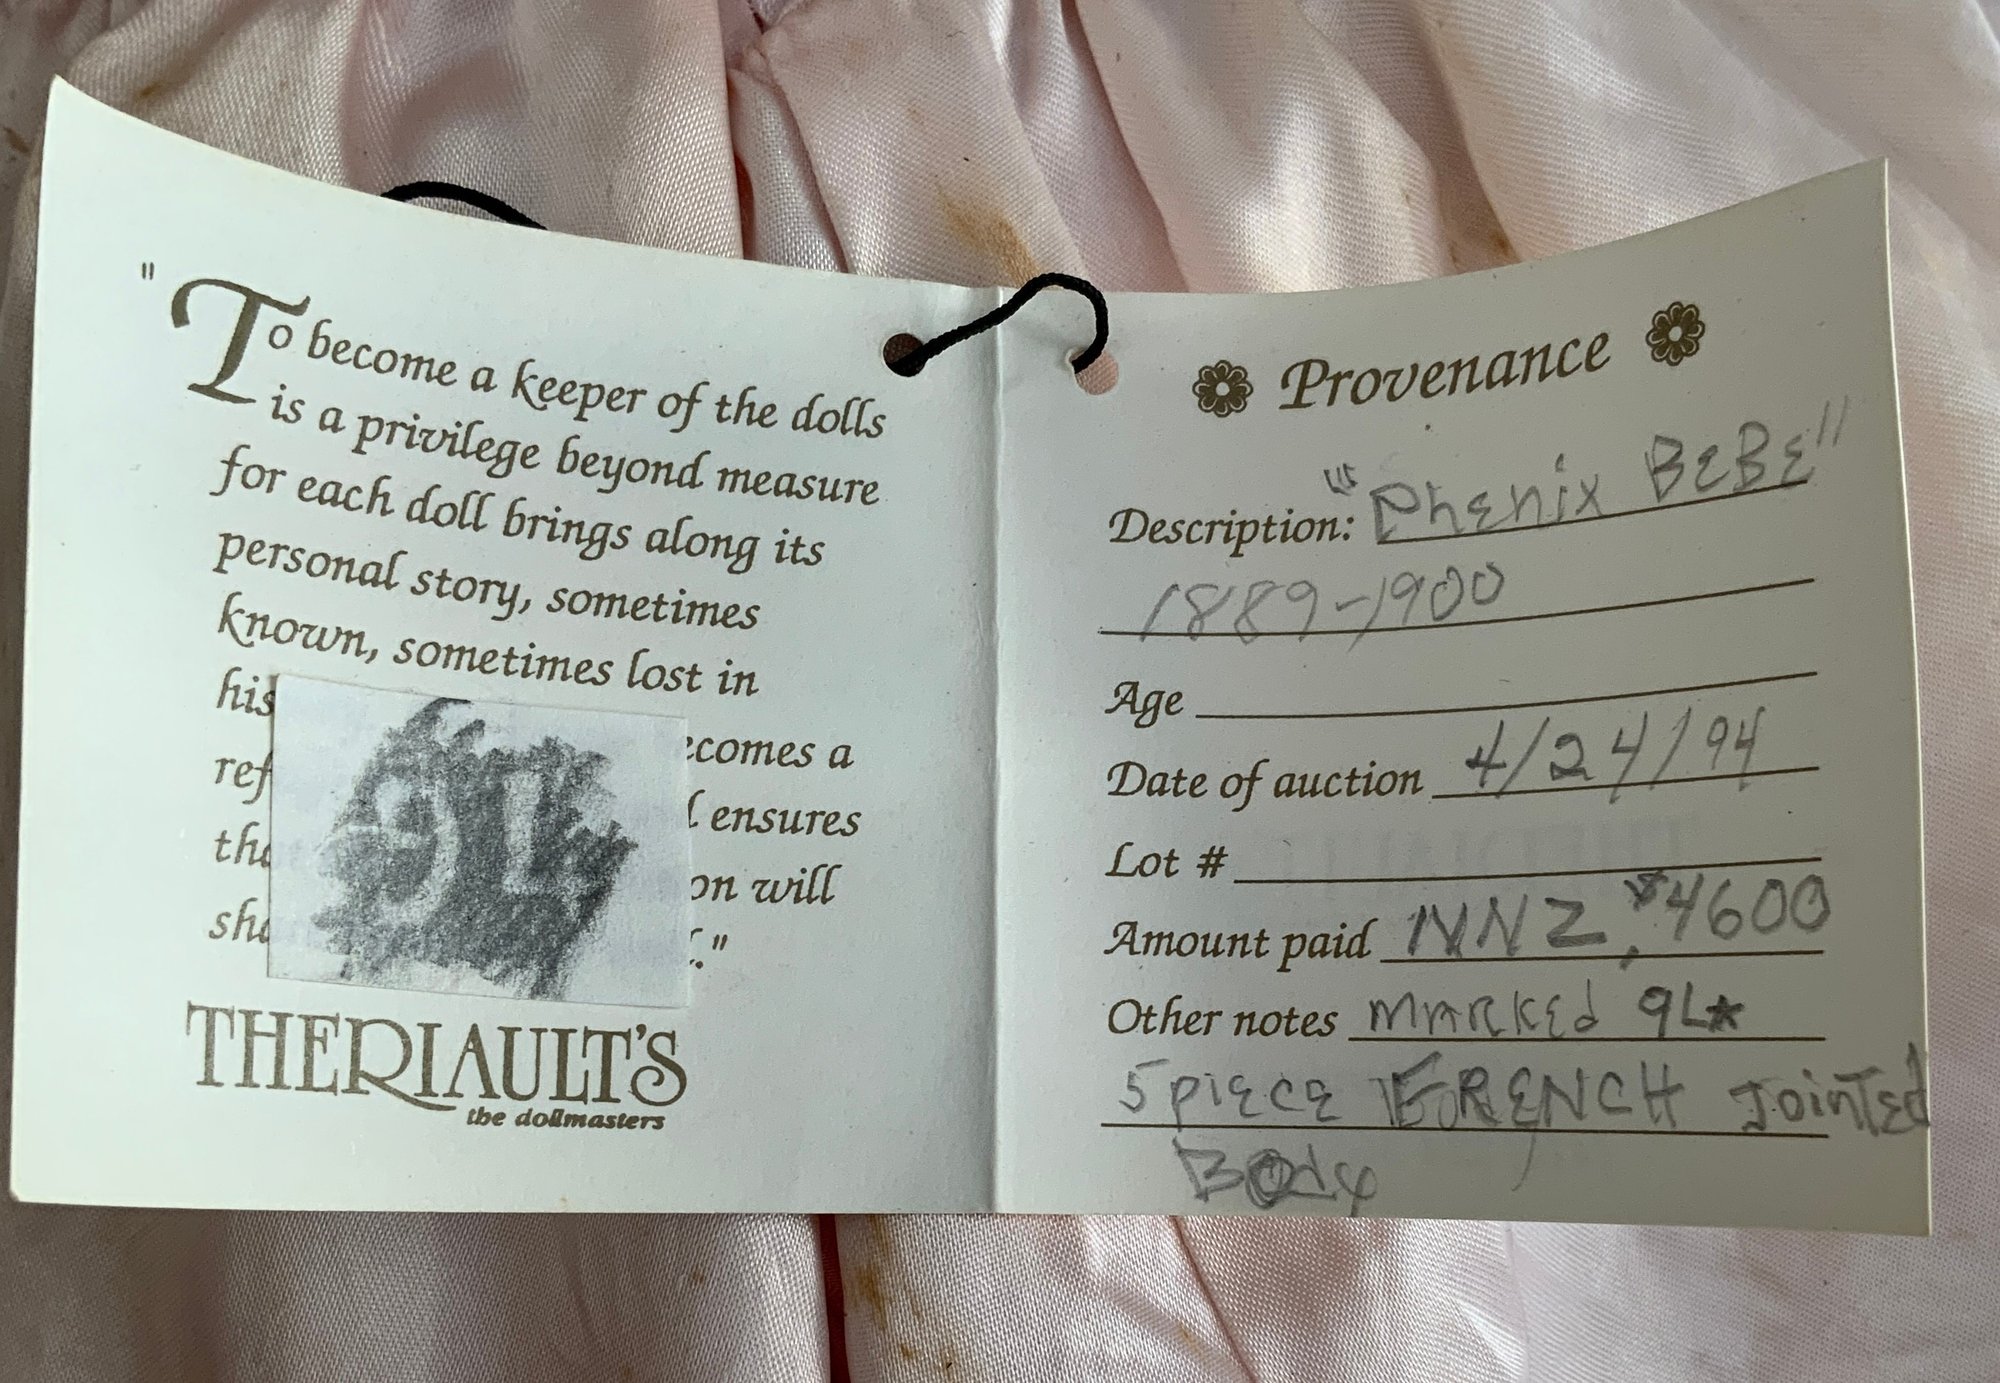 "To become a keeper of the dolls
is a privilege beyond measure
for each doll brings along its
personal story, sometimes
known, sometimes lost in
his
ref ecomes a
tha d ensures
sha on will
."
9L
THERIAULT'S
the dollmasters
Provenance
Description: "Phenix BEBE"
1889-1900
Age
Date of auction 4/24/94
Lot #
Amount paid NNZ, $4600
Other notes MARKEd 9L*
5 piece FRENCH Jointed
Body